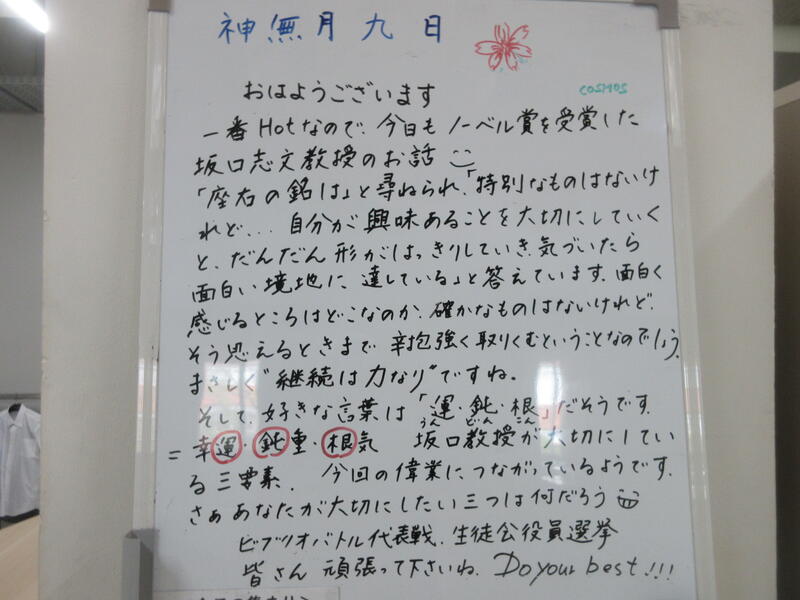 神無月九日
cosmos
おはようございます
一番Hotなので、今日もノーベル賞を受賞した
坂口志文教授のお話
「座右の銘は」と尋ねられ、「特別なものはないけ
れど... 自分が興味あることを大切にしていく
と、だんだん形がはっきりしていき、気づいたら
面白い境地に達している」と答えています。面白く
感じるところはどこなのか、確かなものはないけれど、
そう思えるときまで辛抱強く取りくむということなのでしょう。
まさしく"継続は力なり"ですね。
そして、好きな言葉は「運・鈍・根」だそうです。
うん どん こん
=幸運・鈍重・根気 坂口教授が大切にしてい
る三要素。 今回の偉業につながっているようです。
さぁあなたが大切にしたい三つは何だろう
ビブリオバトル代表戦、生徒会役員選挙
皆さん 頑張って下さいね。Do your best!!!